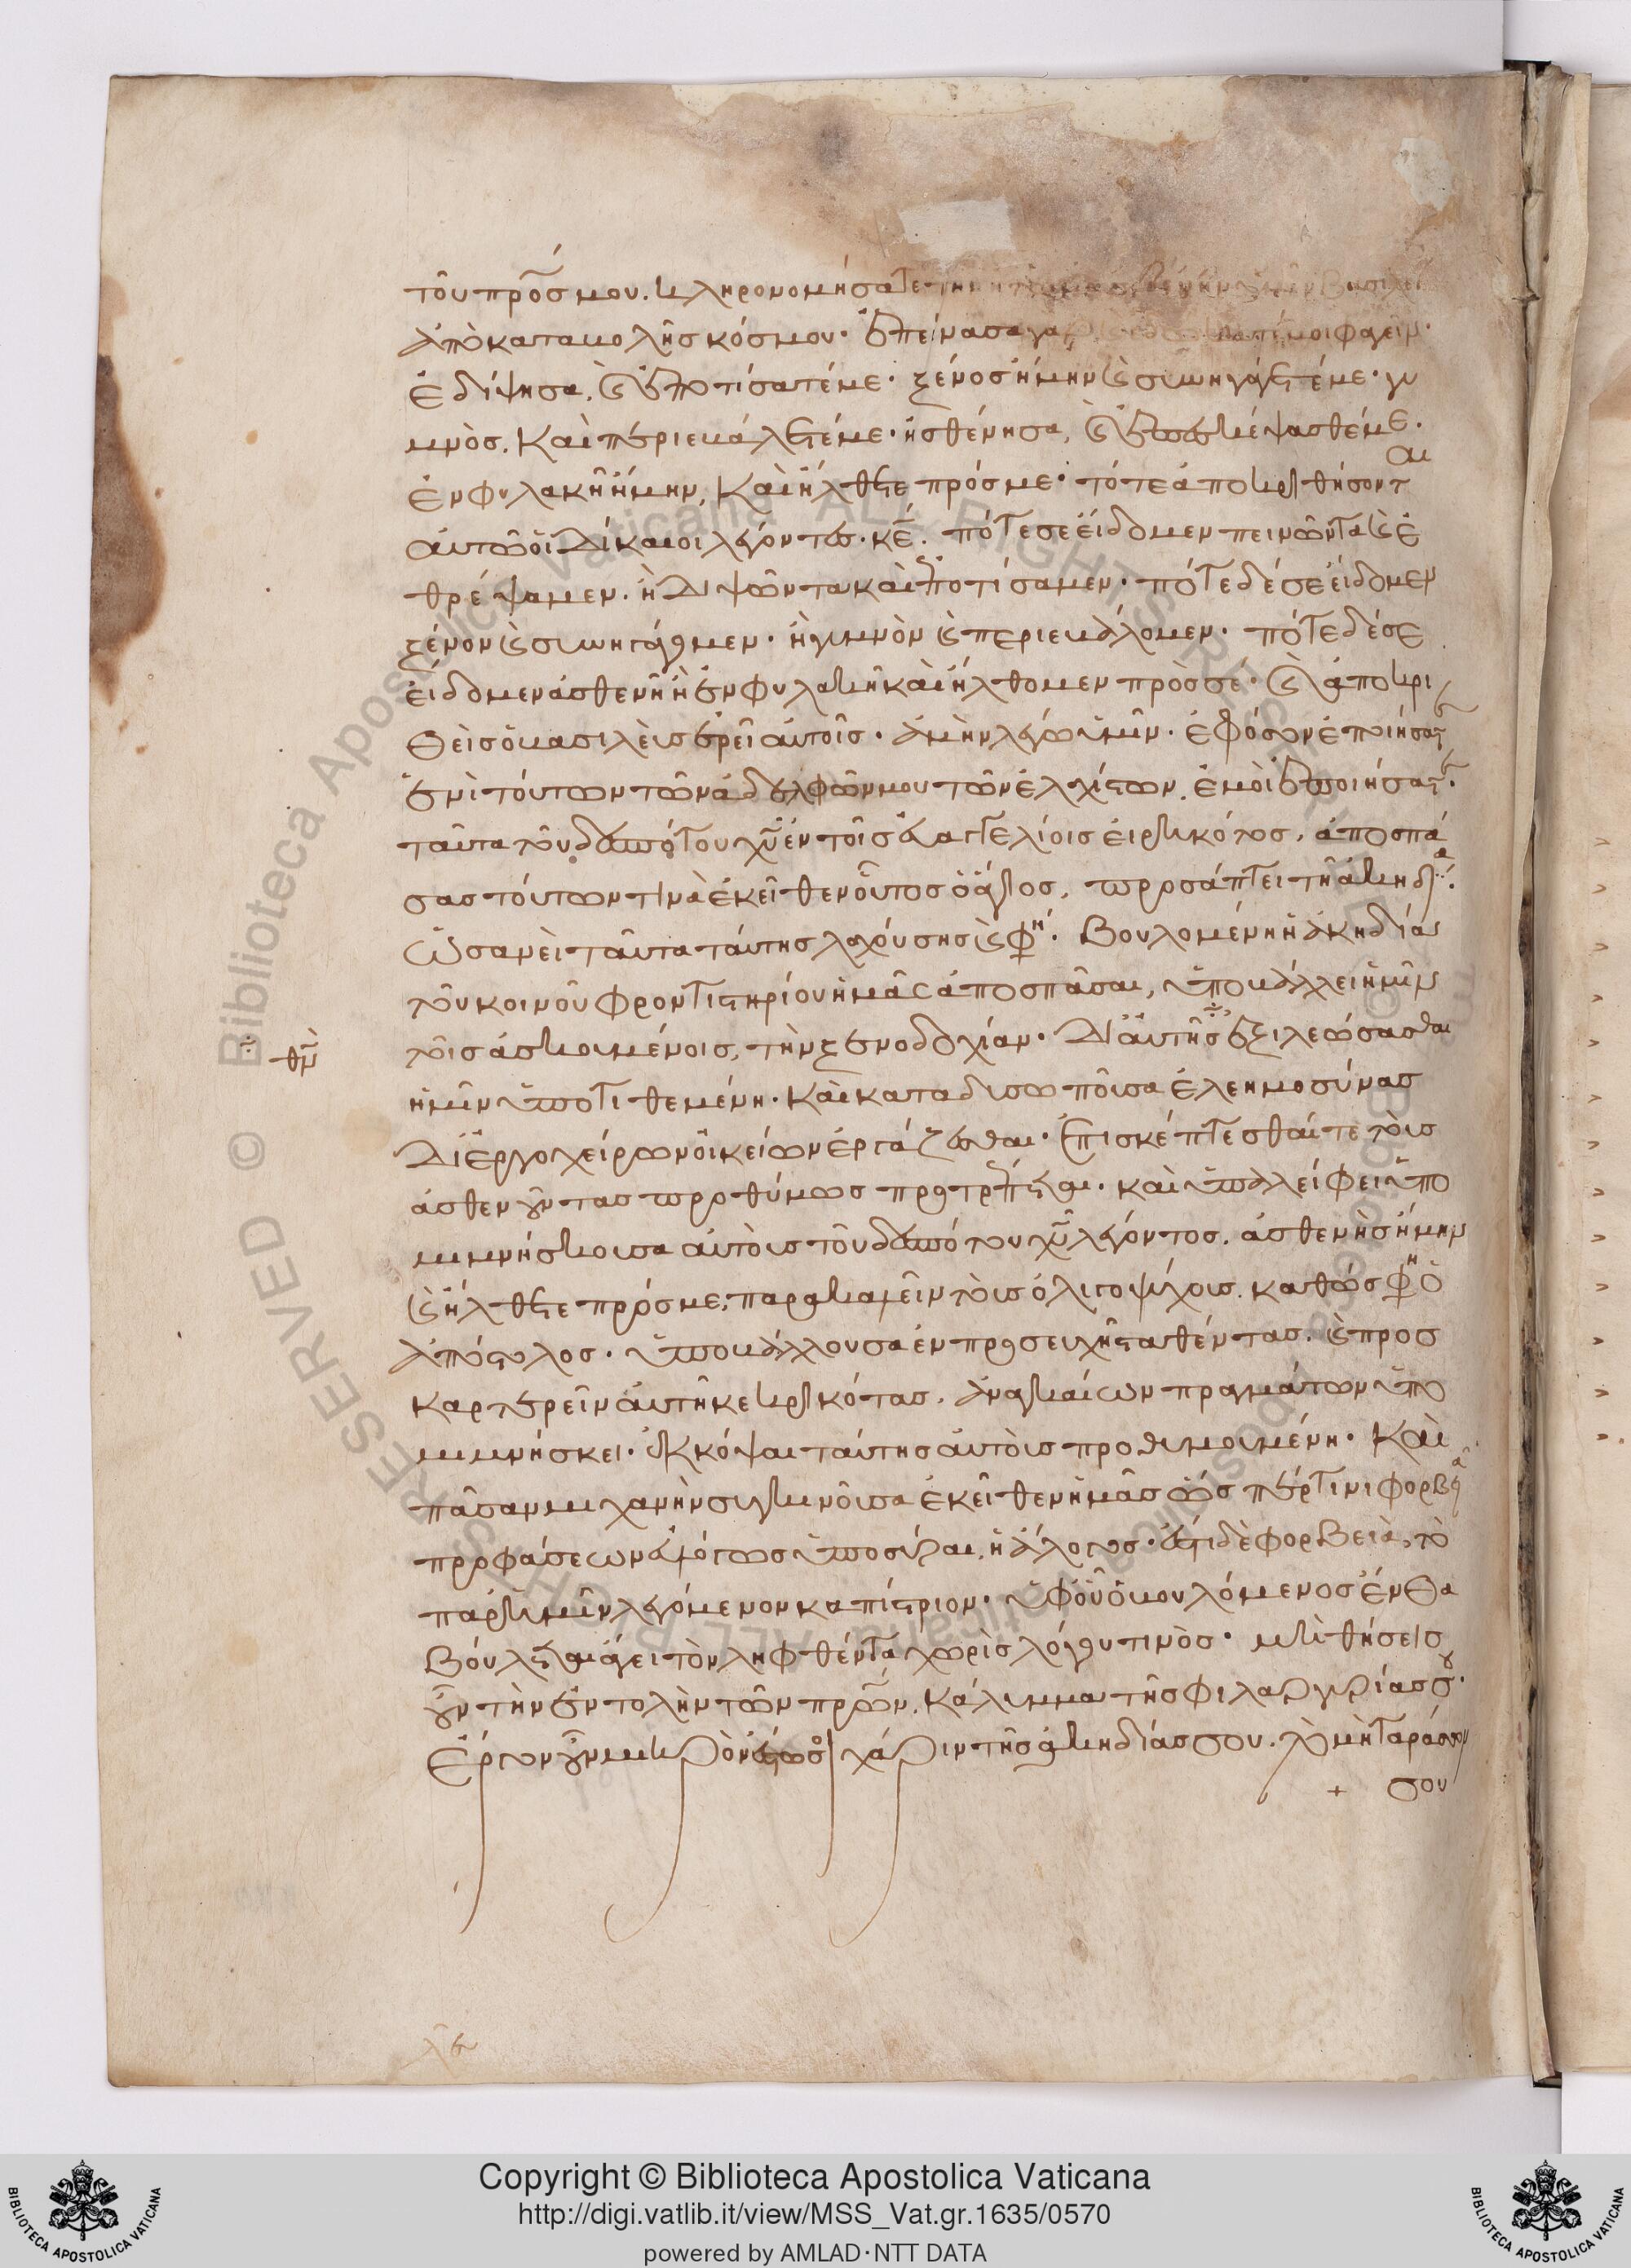 τοῦ πρσ̅ μου. κληρονομήσατε τὴν ἡτοιμασμένην ὑμῖν βασιλεί
ἀπὸ καταβολῆς κόσμου· ἐπείνασα γὰρ
μοι φαγεῖν·
ἐδίψησα, καὶ ἐποτίσατέ με· ξένος ἤμην καὶ συνηγάγετέ με· γυ
μνὸς, καὶ περιεβάλετέ με· ἠσθένησα, καὶ ἐπεσκέψασθέ με·
ἐν φυλακῇ ἤμην, καὶ ἤλθετε πρός με· τότε ἀποκριθήσονται
αὐτῷ οἱ δίκαιοι λέγοντες· κε̅. πότε σε εἴδομεν πεινῶντα καὶ ἐ
θρέψαμεν. ἢ διψῶντα καὶ ἐποτίσαμεν· πότε δέ σε εἴδομεν
ξένον καὶ συνηγάγομεν· ἢ γυμνὸν καὶ περιεβάλομεν· πότε δέ σε
εἴδομεν ἀσθενῆ ἢ ἐν φυλακῇ καὶ ἤλθομεν πρὸς σέ· καὶ ἀποκρι
θεὶς ὁ βασιλεὺς ἐρεῖ αὐτοῖς· ἀμὴν λέγω ὑμῖν· ἐφόσον ἐποιήσατε
ἑνὶ τούτων τῶν ἀδελφῶν μου τῶν ἐλαχίστων, ἐμοὶ ἐποιήσατε·
ταῦτα τοῦ δεσπότου χυ̅ ἐν τοῖς εὐαγγελίοις εἰρηκότος, ἀποσπά
σας τούτων τινὰ ἐκεῖθεν οὗτος ὁ ἅγιος, προσάπτει τῇ ἀκηδία·
ὡσανεὶ ταῦτα ταύτης λεγούσης καὶ φη· Βουλομένη ἡ ἀκηδία
τοῦ κοινοῦ φροντιστηρίου ἡμᾶς ἀποσπᾶσαι, ὑποβάλλει ἡμῖν
τοῖς ἀσκουμένοις, τὴν ξενοδοχίαν· δι' αὐτῆς ἐξιλεώσασθαι
θν̅
ἡμῖν ὑποτιθεμένη· καὶ καταδυσωποῦσα ἐλεημοσύνας
δι' ἐργοχείρων οἰκείων ἐργάζεσθαι· ἐπισκέπτεσθαί τε τοὺς
ἀσθενοῦντας προθύμως προτρέπεται· καὶ ὑπαλείφει ὑπο
μιμνήσκουσα αὐτοὺς τοῦ δεσπότου χυ̅ λέγοντος. ἀσθενὴς ἤμην
καὶ ἤλθετε πρός με· παρακαλεῖν τοὺς ὀλιγοψύχους. καθώς φη ὁ
ἀπόστολος· ὑποβάλλουσα ἐν προσευχῇ σταθέντας. καὶ προσ
καρτερεῖν αὐτῇ κεκρικότας, ἀναγκαίων πραγμάτων ὑπο
μιμνήσκει· ἐκκόψαι ταύτης αὐτοὺς προθυμουμένη· καὶ
πᾶσαν μηχανὴν συγκινοῦσα ἐκεῖθεν ἡμᾶς ὥσπέρ τινι φορβαιᾷ
προφάσεων εὐλόγως ὑποσύραι, ἡ ἄλογος· ἔστι δὲ φορβειὰ, τὸ
παρ' ἡμῖν λεγόμενον καπίστριον· ὑφ' οὗ ὁ βουλόμενος ἔνθα
βούλεται ἄγει τὸν ληφθέντα χωρὶς λόγου τινὸς· μὴ θήσεις
οὖν τὴν ἐντολὴν τῶν πρων̅, κάλυμμα τῆς φιλαργυρίας σου·
ἔργον οὖν μικρὸν ἔστω σοι χάριν τῆς ἀκηδίας σου. τὸ μὴ ταράσσον
+ σου
Copyright © Biblioteca Apostolica Vaticana
http://digi.vatlib.it/view/MSS_Vat.gr.1635/0570
powered by AMLAD·NTT DATA